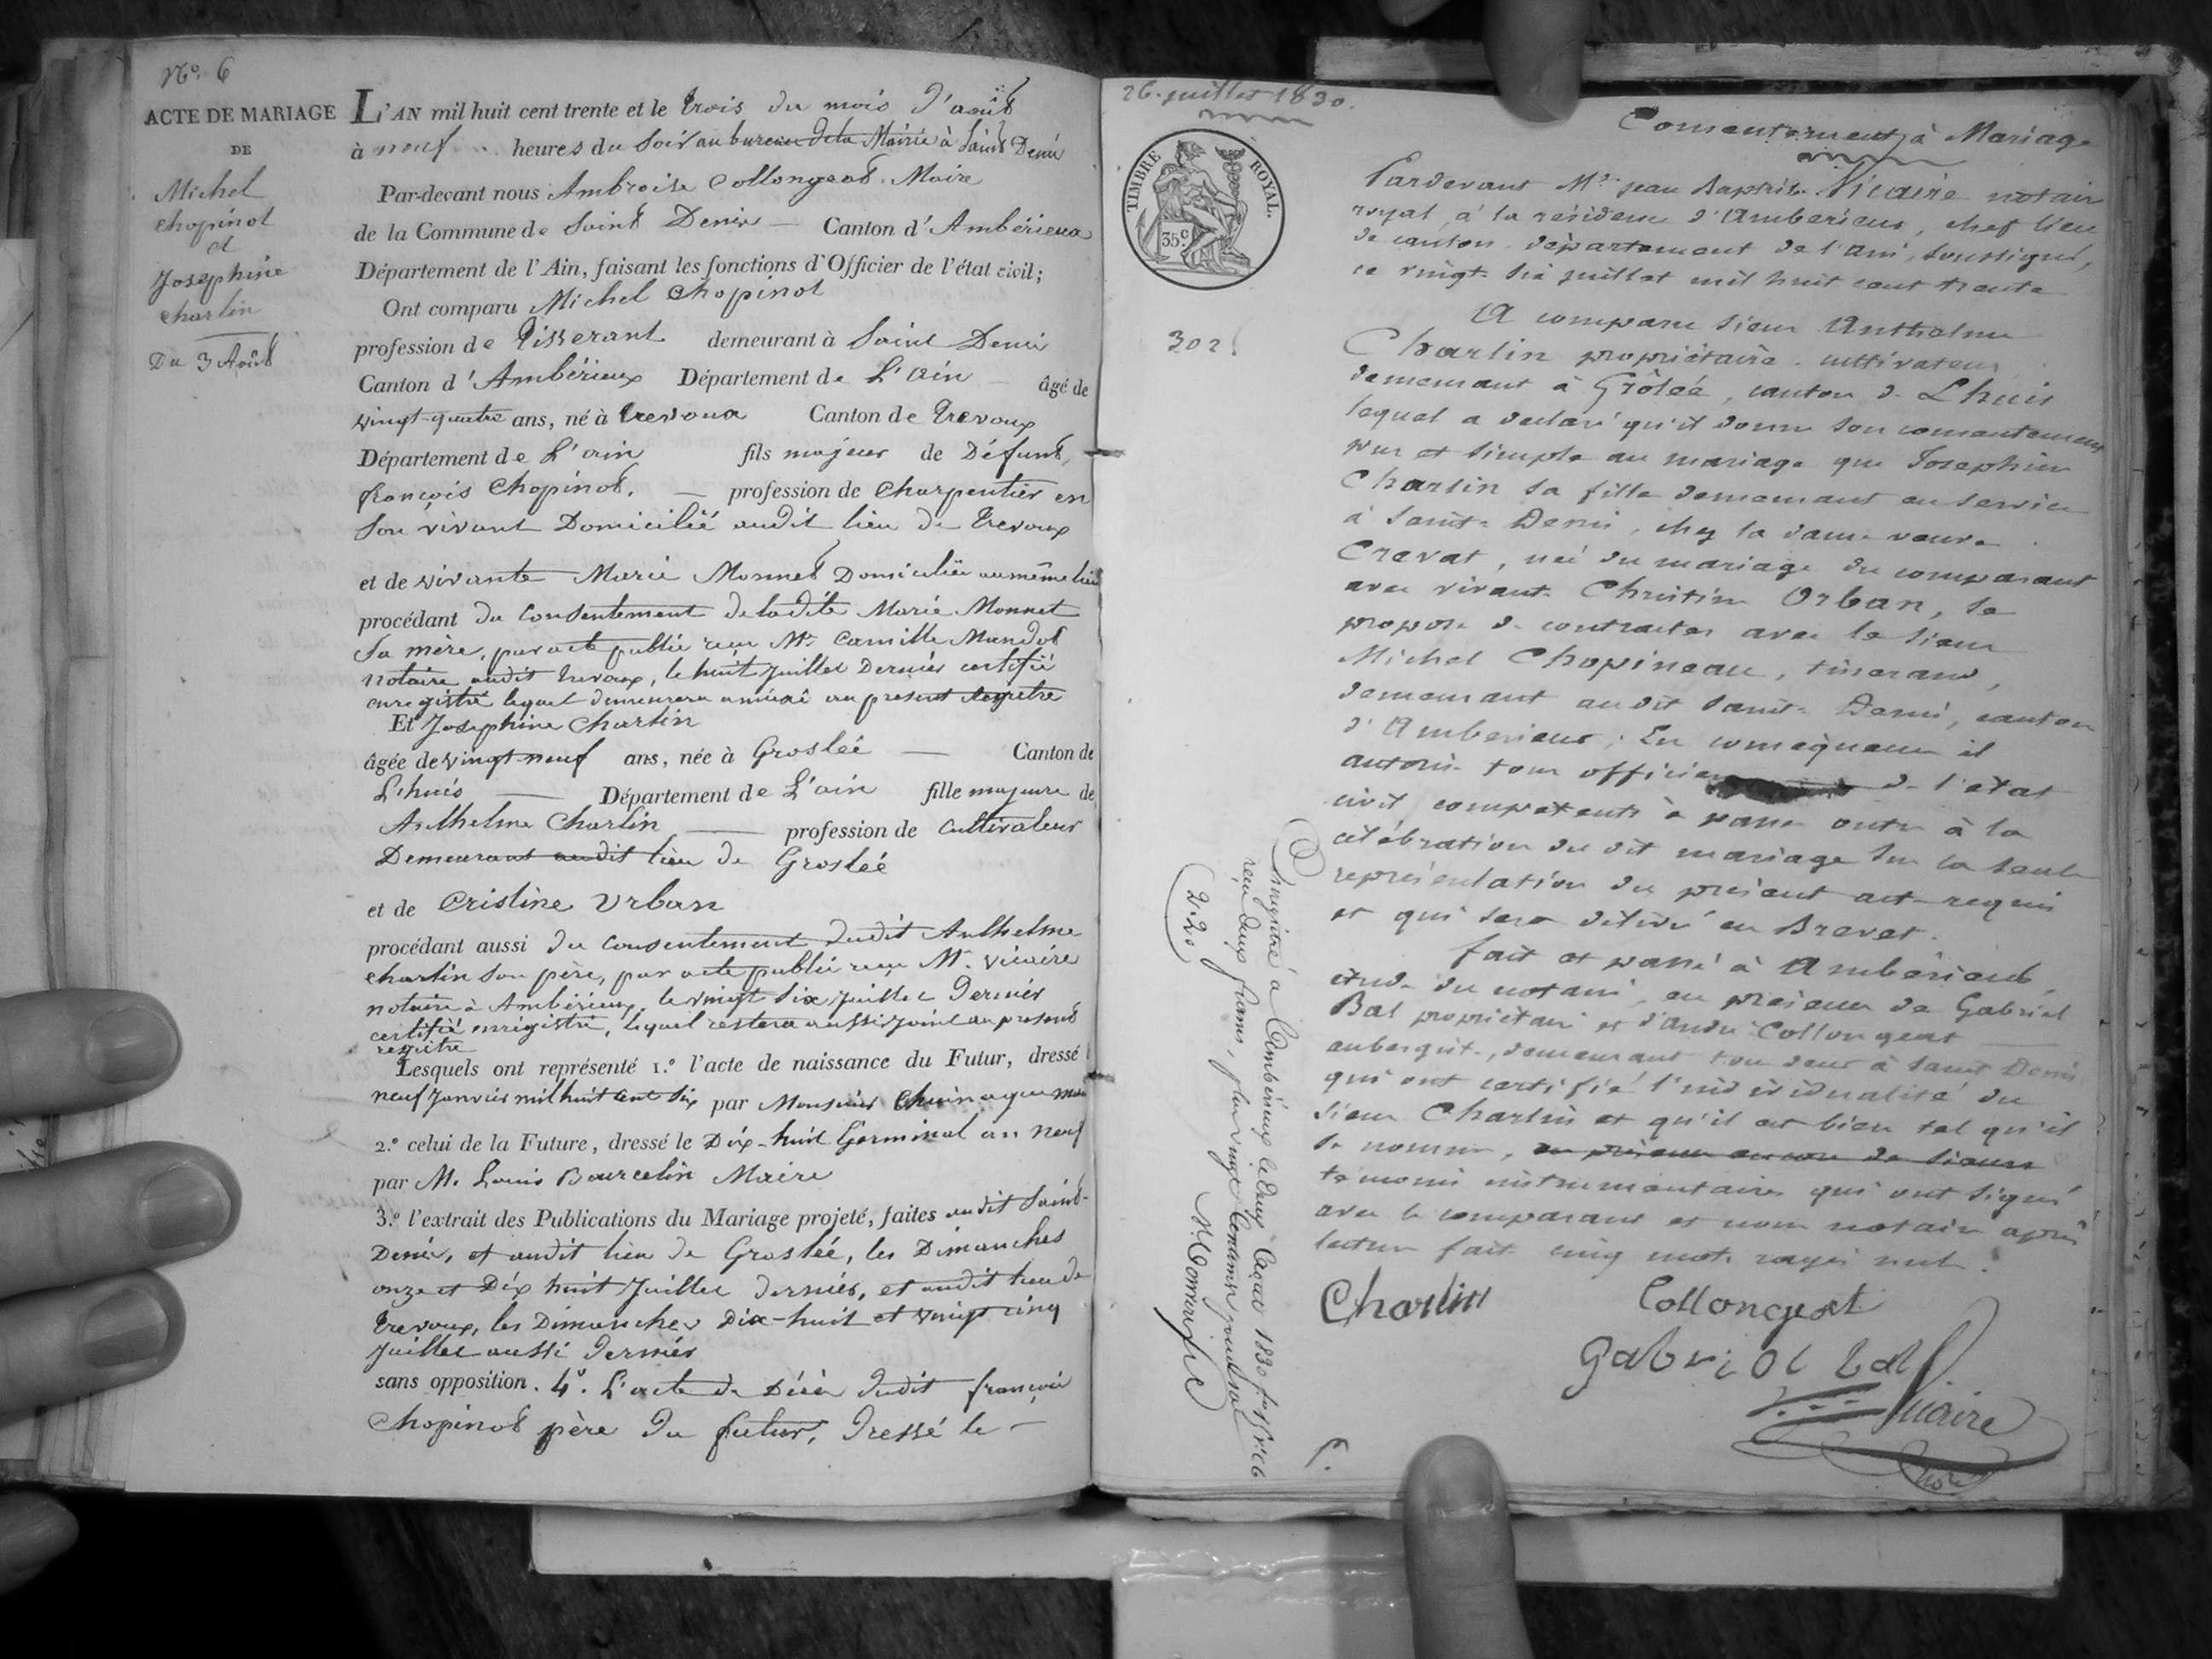 N.º 6
ACTE DE MARIAGE
DE
Michel
Chopinot
et
Josephine
Charlin
Du 3 Août
L'AN mil huit cent trente et le trois du mois d'août
à neuf heures du soir au bureau de la Mairie à Saint Denis
Par-devant nous Ambroise Collongeat Maire
de la Commune de Saint Denis — Canton d'Ambérieux
Département de l'Ain, faisant les fonctions d'Officier de l'état civil;
Ont comparu Michel Chopinot
profession de Tisserant demeurant à Saint Denis
Canton d'Ambérieux Département de L'ain — âgé de
vingt-quatre ans, né à trevoux Canton de trevoux
Département de L'ain fils majeur de Défunt,
françois Chopinot. — profession de Charpentier en
son vivant Domicilié audit lieu de trevoux
et de vivante Marie Monnet Domiciliée au même lieu
procédant du consentement de ladite Marie Monnet
sa mère, par acte public reçu Mr. Camille Mandot
notaire audit trevoux, le huit juillet Dernier certifié
enregistré lequel demeurera annexé au present registre
Et Josephine Charlin
âgée de vingt-neuf ans, née à Groslée — Canton de
Lhuis — Département de L'ain fille majeure de
Anthelme Charlin — profession de Cultivateur
Demeurant audit lieu de Groslée
et de Cristine Urban
procédant aussi du consentement dudit Anthelme
charlin son père, par acte public reçu Mr. Vicaire
notaire à Ambérieux, le vingt six juillet Dernier
certifié enrigistré, lequel restera aussi joint au present
registre
Lesquels ont représenté 1.º l'acte de naissance du Futur, dressé
neuf Janvier mil huit cent six par Monsieur
2.º celui de la Future, dressé le Dix-huit Germinal an neuf
par M. Louis Bourcelin Maire
3.º l'extrait des Publications du Mariage projeté, faites audit Saint-
Denis, et audit lieu de Groslée, les Dimanches
onze et Dix huit Juillet dernier, et audit lieu de
trevoux, les Dimanches Dix-huit et vingt cinq
Juillet aussi Dernier
sans opposition. 4º. L'acte de Décès dudit françois
Chopinot père du futur, Dressé le —
26 juillet 1830.
TIMBRE ROYAL.
35 c
302.
Consentement à Mariage
Pardevant Me. jean Baptiste Vicaire notaire
royal, à la résidence d'Amberieux, chef lieu
de canton, département de l'ain, soussigné,
ce vingt six juillet mil huit cent trente
A comparu sieur Anthelme
Charlin propriétaire cultivateur
demeurant à Grôlée, canton de Lhuis
lequel a declaré qu'il donne son consentement
pur et simple au mariage que Josephine
Charlin sa fille demeurant en service
à Saint Denis, chez la dame veuve
Cravat, née du mariage du comparant
avec vivante Christine Orban, se
propose de contracter avec le sieur
Michel Chopineau, tisserand,
demeurant audit Saint Denis, canton
d'Amberieux; En consequence il
autorise tous officiers de l'état
civil compétents à passer outre à la
célébration du dit mariage sur la seule
représentation du présent acte requis
et qui sera délivré en Brevet.
fait et passé à Ambérieux,
étude du notaire, en présence de Gabriel
Bal propriétaire et d'André Collongeat
aubergiste, demeurant tous deux à Saint Denis
qui ont certifié l'individualité du
sieur Charlin et qu'il est bien tel qu'il
se nomme, en présence encore de sieurs
témoins instrumentaires qui ont signé
avec le comparant et nous notaire après
lecture faite cinq mots rayés nuls.
Charlin Collongeat
Gabriel Bal
Vicaire
Enregistré à Ambérieux le deux Août 1830
reçu deux francs, plus vingt centimes pour
2.20